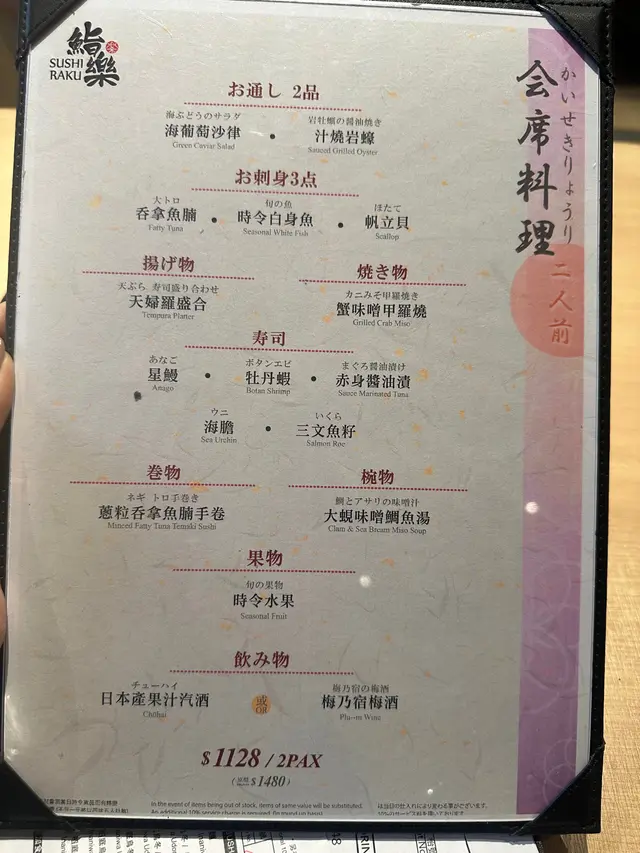 鮨樂
SUSHI
RAKU
会席料理
かいせきりょうり
二人前
お通し 2品
海ぶどうのサラダ
海葡萄沙律
Green Caviar Salad
岩牡蠣の醤油焼き
汁燒岩蠔
Sauced Grilled Oyster
お刺身3点
大トロ
吞拿魚腩
Fatty Tuna
旬の魚
時令白身魚
Seasonal White Fish
ほたて
帆立貝
Scallop
揚げ物
天ぷら 寿司盛り合わせ
天婦羅盛合
Tempura Platter
焼き物
カニみそ甲羅焼き
蟹味噌甲羅燒
Grilled Crab Miso
寿司
あなご
星鰻
Anago
ボタンエビ
牡丹蝦
Botan Shrimp
まぐろ醤油漬け
赤身醬油漬
Sauce Marinated Tuna
ウニ
海膽
Sea Urchin
いくら
三文魚籽
Salmon Roe
巻物
ネギ トロ手巻き
蔥粒吞拿魚腩手卷
Minced Fatty Tuna Temaki Sushi
椀物
鯛とアサリの味噌汁
大蜆味噌鯛魚湯
Clam & Sea Bream Miso Soup
果物
旬の果物
時令水果
Seasonal Fruit
飲み物
チューハイ
日本產果汁汽酒
Chūhai
或
OR
梅乃宿の梅酒
梅乃宿梅酒
Wine
$1128 / 2PAX
$1480)
In the event of items being out of stock, items of same value will be substituted.
An additional 10% service charge is required.
は当日の仕入れにより変わる事がございます。